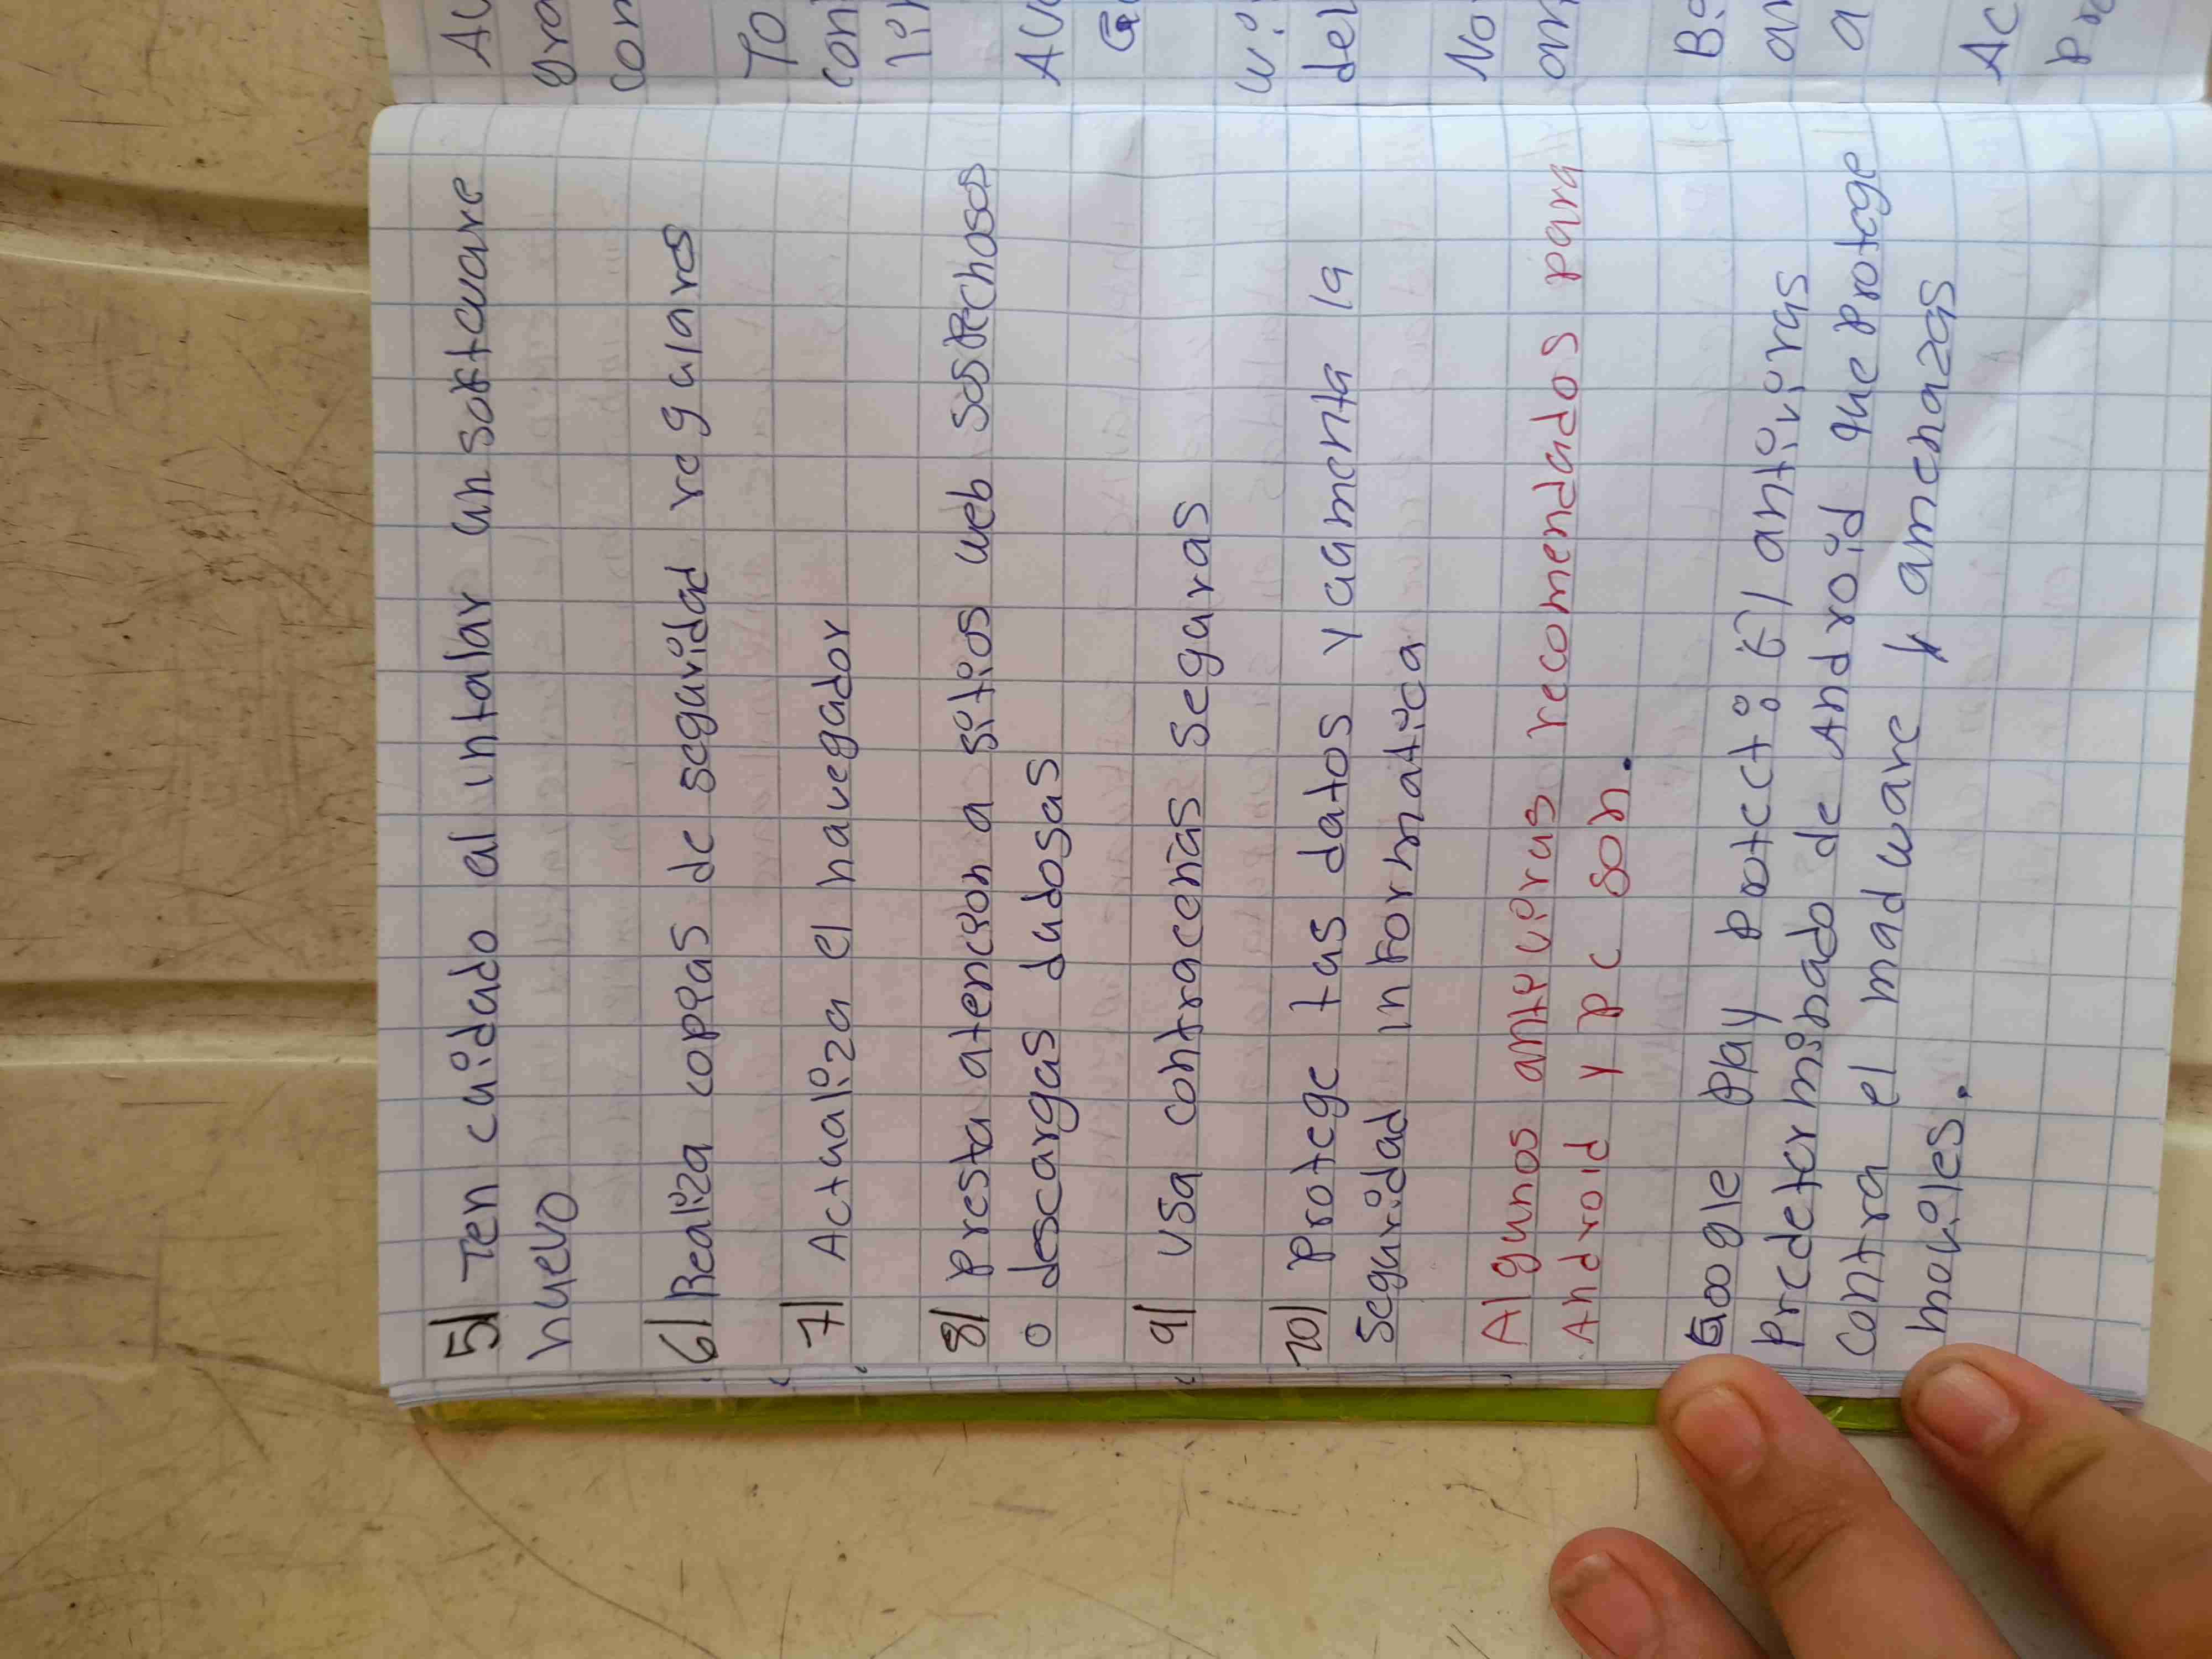 5) Ten cuidado al intalar un software
nuevo
6) Realiza copias de seguridad regulares
7) Actualiza el navegador
8) Presta atencion a sitios web sospechosos
o descargas dudosas
9) Usa contraceñas seguras
10) Protege tus datos y aumenta la
seguridad informatica
Algunos antivirus recomendados para
Android y pc son.
Google Play potect: El antivirus
Predeterminado de Android que Protege
contra el madware y amenazas
moviles.
AV
gra
con
To
con
AV
wi
del
No
an
Bi
an
a
Ac
Pro